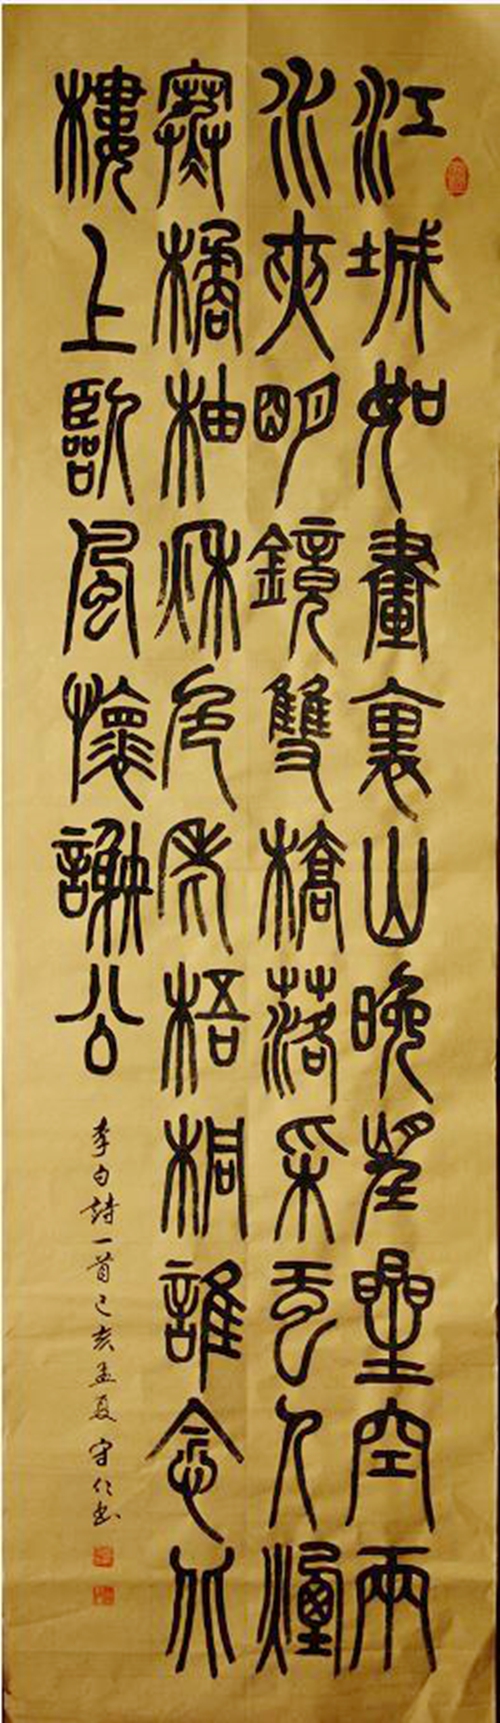 江城如畫裏山晚望晴空兩
水夾明鏡雙橋落采虹人煙
寒橘柚秋色老梧桐誰念北
樓上臨風懷謝公
李白詩一首己亥孟夏守仁書